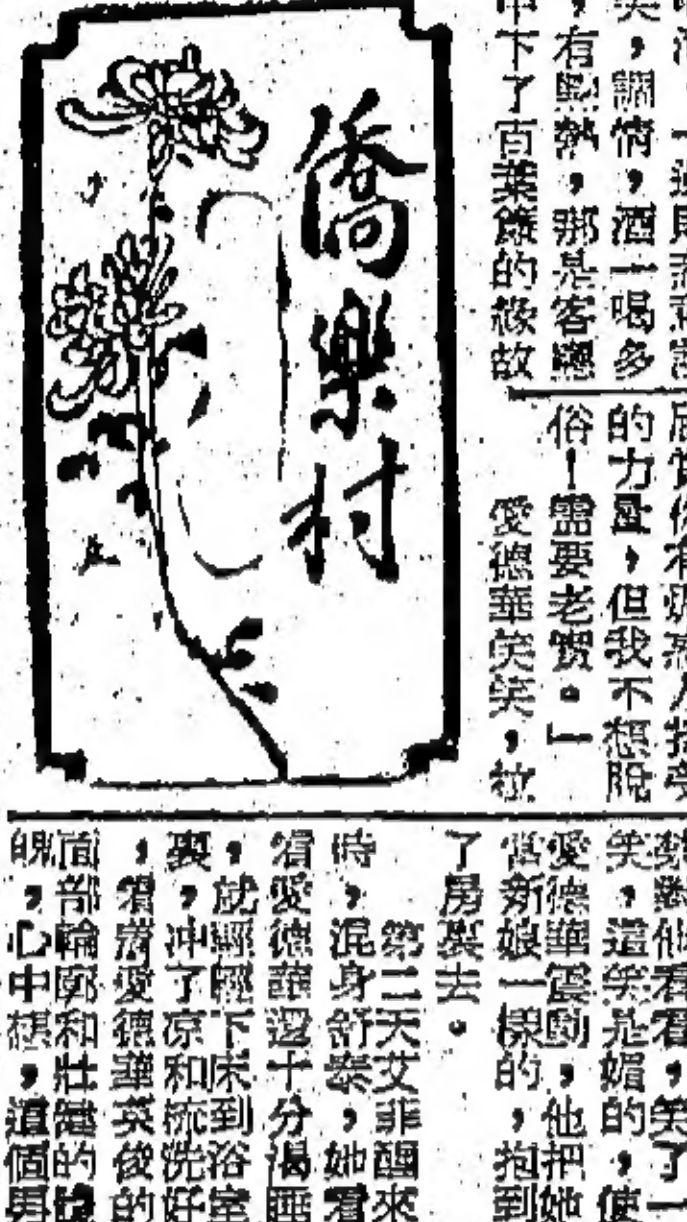 僑樂村
笑，調情，酒一喝多
，有點熱，那是客廳
中下了百葉簾的緣故
的力量，但我不想脫
俗！需要老實。」
愛德華笑笑，拉
笑，這笑是媚的，使
愛德華震動，他把她
當新娘一樣的，抱到
了房裏去。
第二天艾菲醒來
時，混身舒泰，她看
看愛德華還十分渴睡
，就輕輕下床到浴室
裏，冲了凉和梳洗好
，看看愛德華英俊的
面部輪廓和壯健的
，心中想，這個男